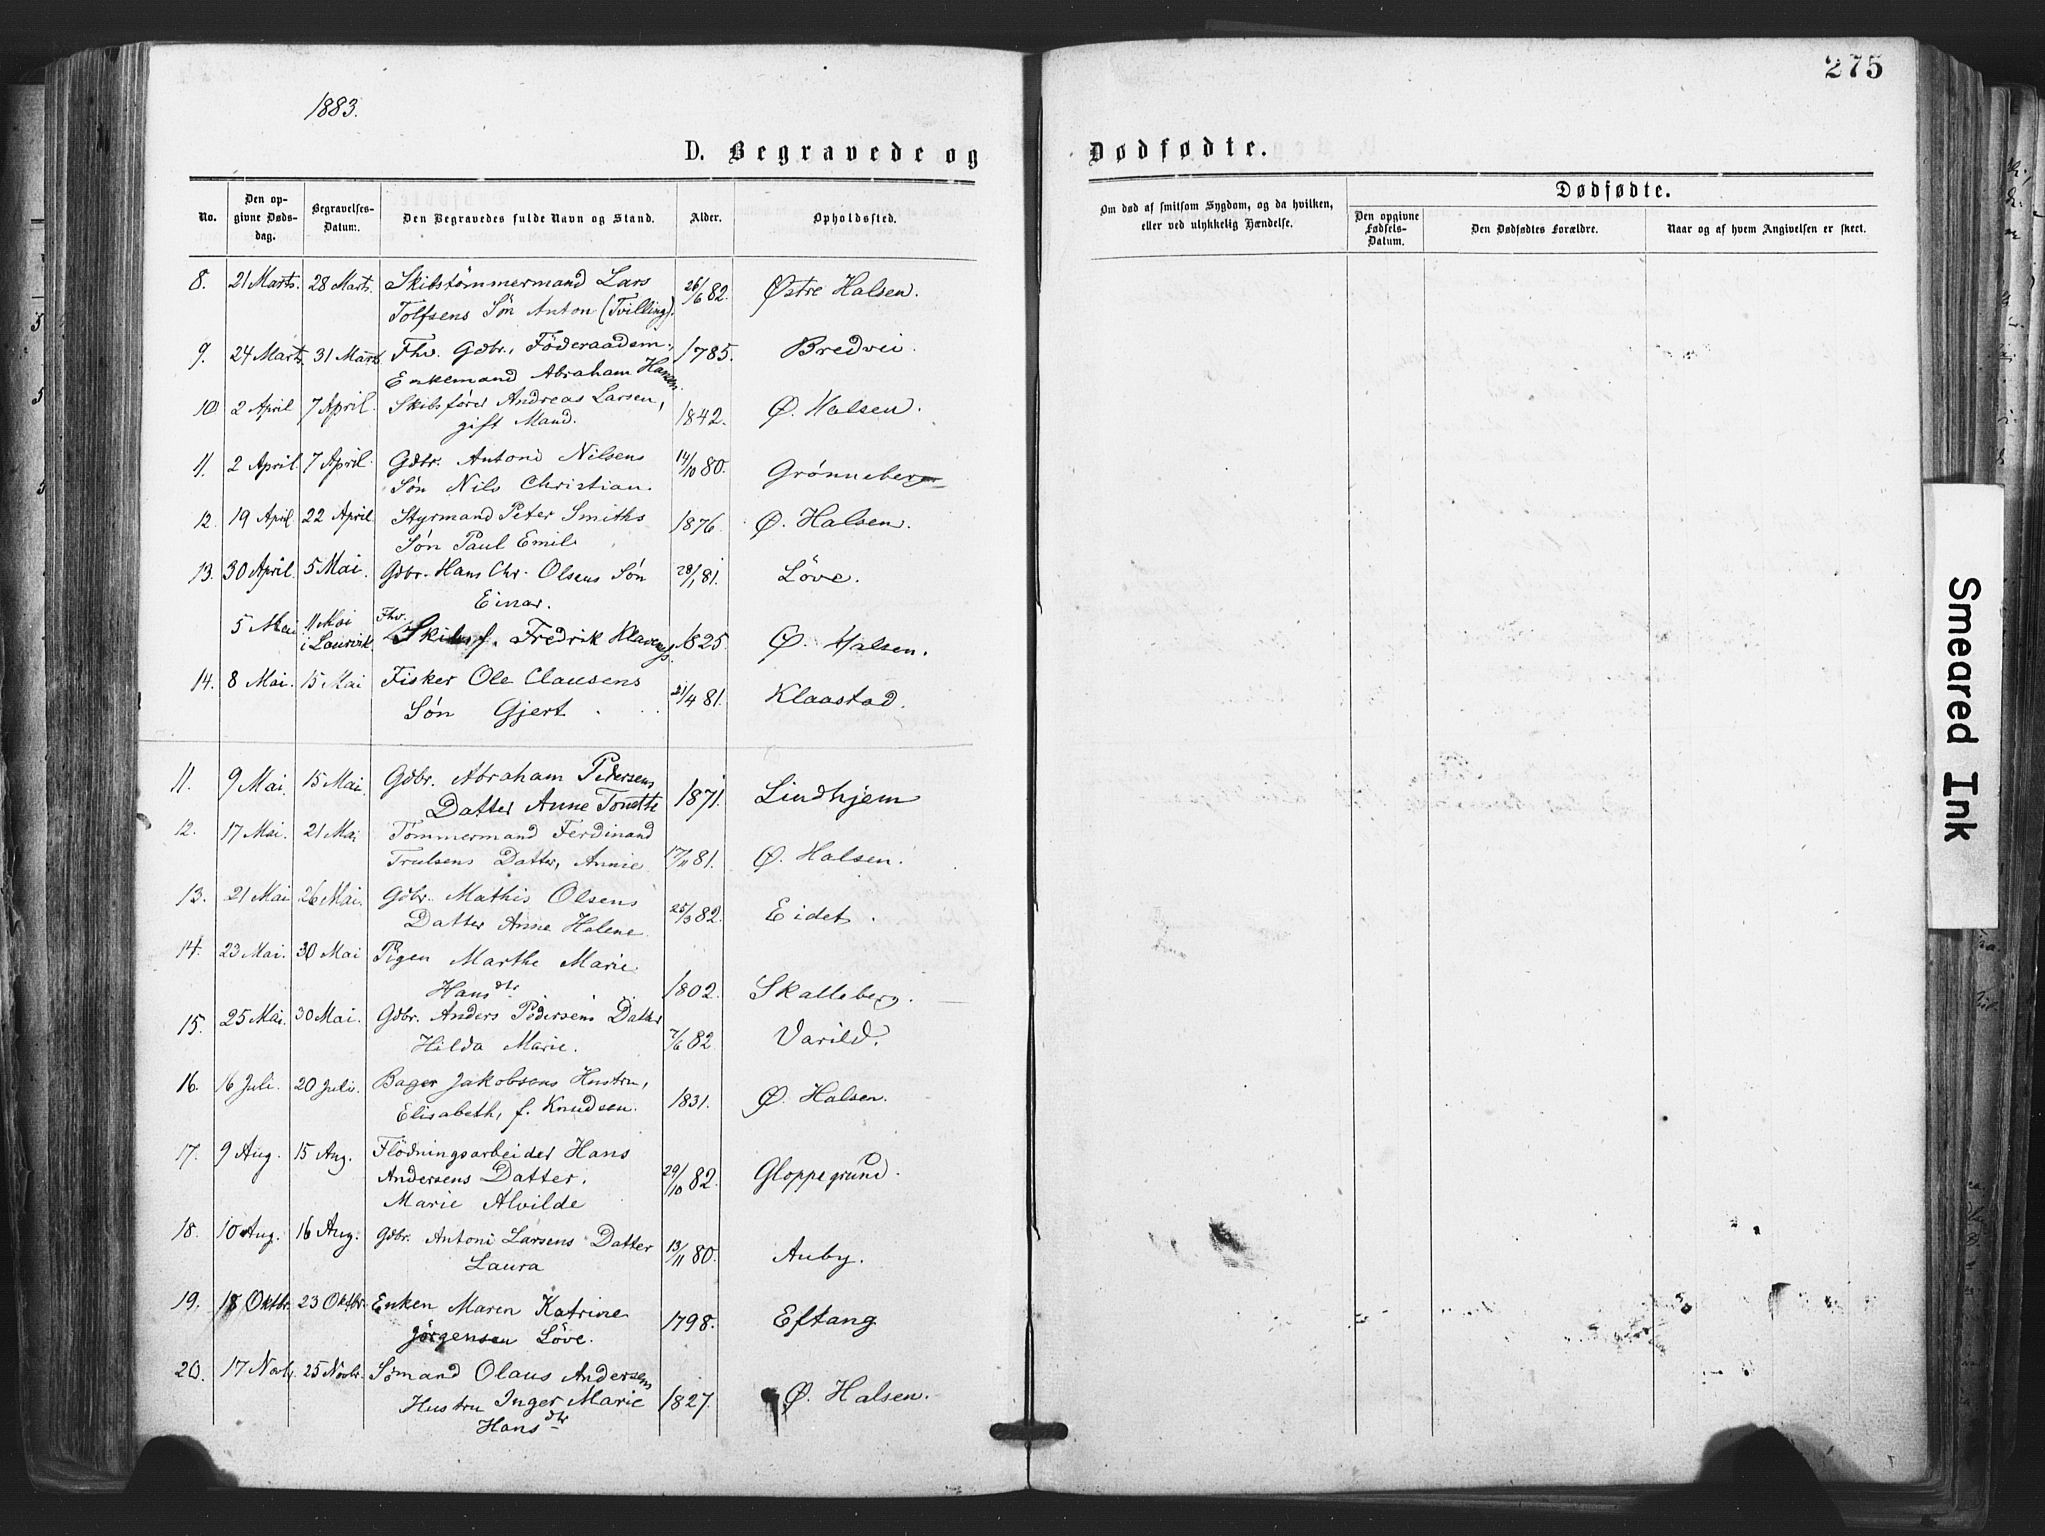 275
1883.
D. Begravede og Dødfødte.
No. Den opgivne Dødsdag. Begravelses-Datum. Den Begravedes fulde Navn og Stand. Alder. Opholdssted.
Om død af smitsom Sygdom, og da hvilken, eller ved ulykkelig Hændelse.
Dødfødte.
Den opgivne Fødsels-Datum. Den Dødfødtes Forældre. Naar og af hvem Angivelsen er skeet.
8. 21 Marts. 28 Marts. Skibstømmermand Lars 26/6 82. Østre Halsen.
Tolfsens Søn Anton (Tvilling).
9. 24 Marts. 31 Marts Fhv. Gdbr., Föderaadsm., 1785. Bredvei.
Enkemand Abraham Hansen.
10 2 April 7 April. Skibsfører Andreas Larsen, 1842. Ø. Halsen.
gift Mand.
11. 2 April. 7 April. Gdbr. Antoni Nilsens 14/10 80. Grønneberg
Søn Nils Christian.
12. 19 April. 22 April. Styrmand Peter Smiths 1876. Ø. Halsen.
Søn Paul Emil.
13. 30 April. 5 Mai. Gdbr. Hans Chr. Olsens Søn 28/1 81. Löve.
Einar.
5 Mai 11 Mai i Laurvik. Fhv. Skibsf. Fredrik Klavenæs. 1825. Ø. Halsen.
14. 8 Mai. 15 Mai Fisker Ole Clausens 21/4 81. Klaastad.
Søn Gjert
11. 9 Mai. 15 Mai. Gdbr. Abraham Pedersens 1871. Lindhjem
Datter Anne Tonette
12. 17 Mai. 21 Mai Tømmermand Ferdinand 17/11 81. Ø. Halsen.
Trulsens Datter, Annie
13. 21 Mai 26 Mai. Gdbr. Mathis Olsens 25/3 82. Eidet.
Datter Anne Halene
14. 23 Mai. 30 Mai Pigen Marthe Marie 1802. Skalleberg.
Hansdtr.
15. 25 Mai. 30 Mai. Gdbr. Anders Pedersens Datter 7/6 82 Varild.
Hilda Marie.
16. 16 Juli. 20 Juli. Bager Jakobsens Hustru, 1831. Ø. Halsen.
Elisabeth, f. Knudsen.
17. 9 Aug. 15 Aug. Flödningsarbeider Hans 29/10 82. Gloppegrund.
Andersens Datter.
Marie Alvilde
18. 10 Aug. 16 Aug. Gdbr. Antoni Larsens Datter 13/11 80. Auby.
Laura
19. 18 Oktbr. 23 Oktbr. Enken Maren Katrine 1798. Eftang
Jörgensen Löve.
20. 17 Novbr. 25 Novbr. Sømand Olaus Andersens 1827. Ø. Halsen.
Hustru Inger Marie
Hansdtr
Smeared Ink